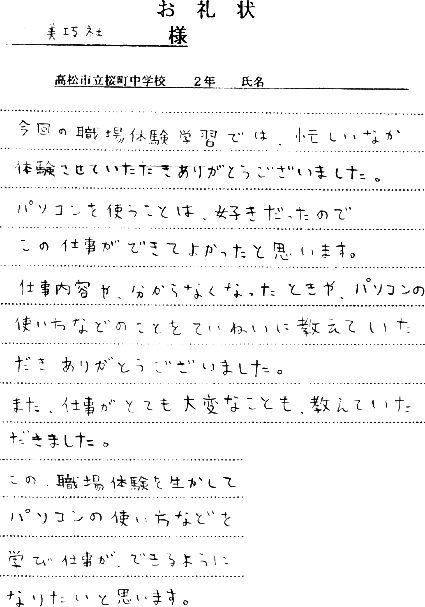 お礼状
美巧社 様
高松市立桜町中学校 2年 氏名
今回の職場体験学習では、忙しいなか
体験させていただきありがとうございました。
パソコンを使うことは、好きだったので
この仕事ができてよかったと思います。
仕事内容や、分からなくなったときや、パソコンの
使い方などのことをていねいに教えていた
だきありがとうございました。
また、仕事がとても大変なことも、教えていた
だきました。
この、職場体験を生かして
パソコンの使い方などを
学び仕事が、できるように
なりたいと思います。